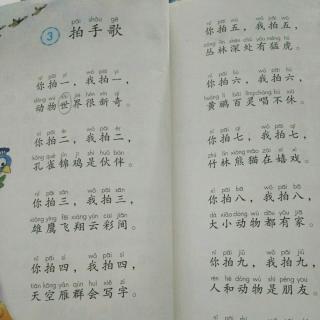 pāi shǒu gē
3 拍手歌
nǐ pāi yī wǒ pāi yī
你拍一，我拍一，
dòng wù shì jiè hěn xīn qí
动物世界很新奇。
nǐ pāi èr wǒ pāi èr
你拍二，我拍二，
kǒng què jǐn jī shì huǒ bàn
孔雀锦鸡是伙伴。
nǐ pāi sān wǒ pāi sān
你拍三，我拍三，
xióng yīng fēi xiáng yún cǎi jiān
雄鹰飞翔云彩间。
nǐ pāi sì wǒ pāi sì
你拍四，我拍四，
tiān kōng yàn qún huì xiě zì
天空雁群会写字。
nǐ pāi wǔ wǒ pāi wǔ
你拍五，我拍五，
cóng lín shēn chù yǒu měng hǔ
丛林深处有猛虎。
nǐ pāi liù wǒ pāi liù
你拍六，我拍六，
huáng lí bǎi líng chàng bù xiū
黄鹂百灵唱不休。
nǐ pāi qī wǒ pāi qī
你拍七，我拍七，
zhú lín xióng māo zài xī xì
竹林熊猫在嬉戏。
nǐ pāi bā wǒ pāi bā
你拍八，我拍八，
dà xiǎo dòng wù dōu yǒu jiā
大小动物都有家。
nǐ pāi jiǔ wǒ pāi jiǔ
你拍九，我拍九，
rén hé dòng wù shì péng you
人和动物是朋友。